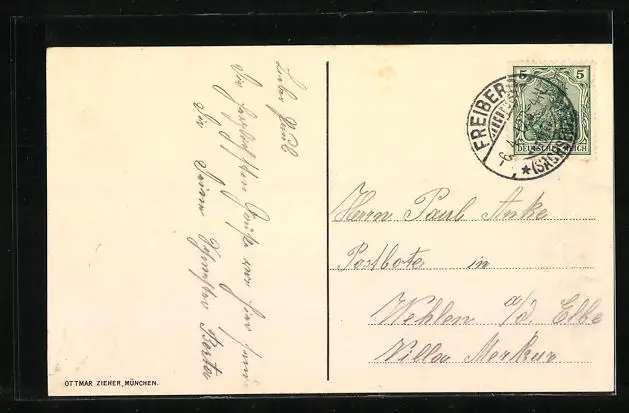 Lieber Paul
Die herzlichsten Grüße von hier
Deine Schwester Berta
FREIBERG
*(SACHSEN)
5 5
DEUTSCHES REICH
Herrn Paul Anke
Postbote in
Wehlen a/d. Elbe
Villa Merkur
OTTMAR ZIEHER, MÜNCHEN.